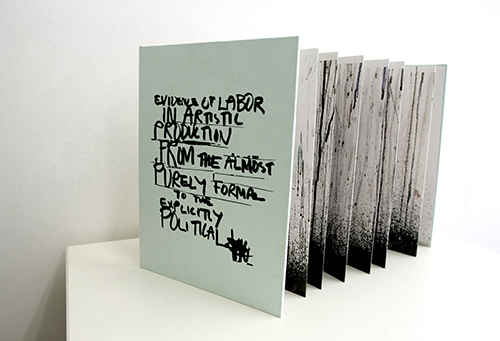 EVIDENCE OF LABOR
IN ARTISTIC
PRODUCTION
FROM THE ALMOST
PURELY FORMAL
TO THE
EXPLICITLY
POLITICAL